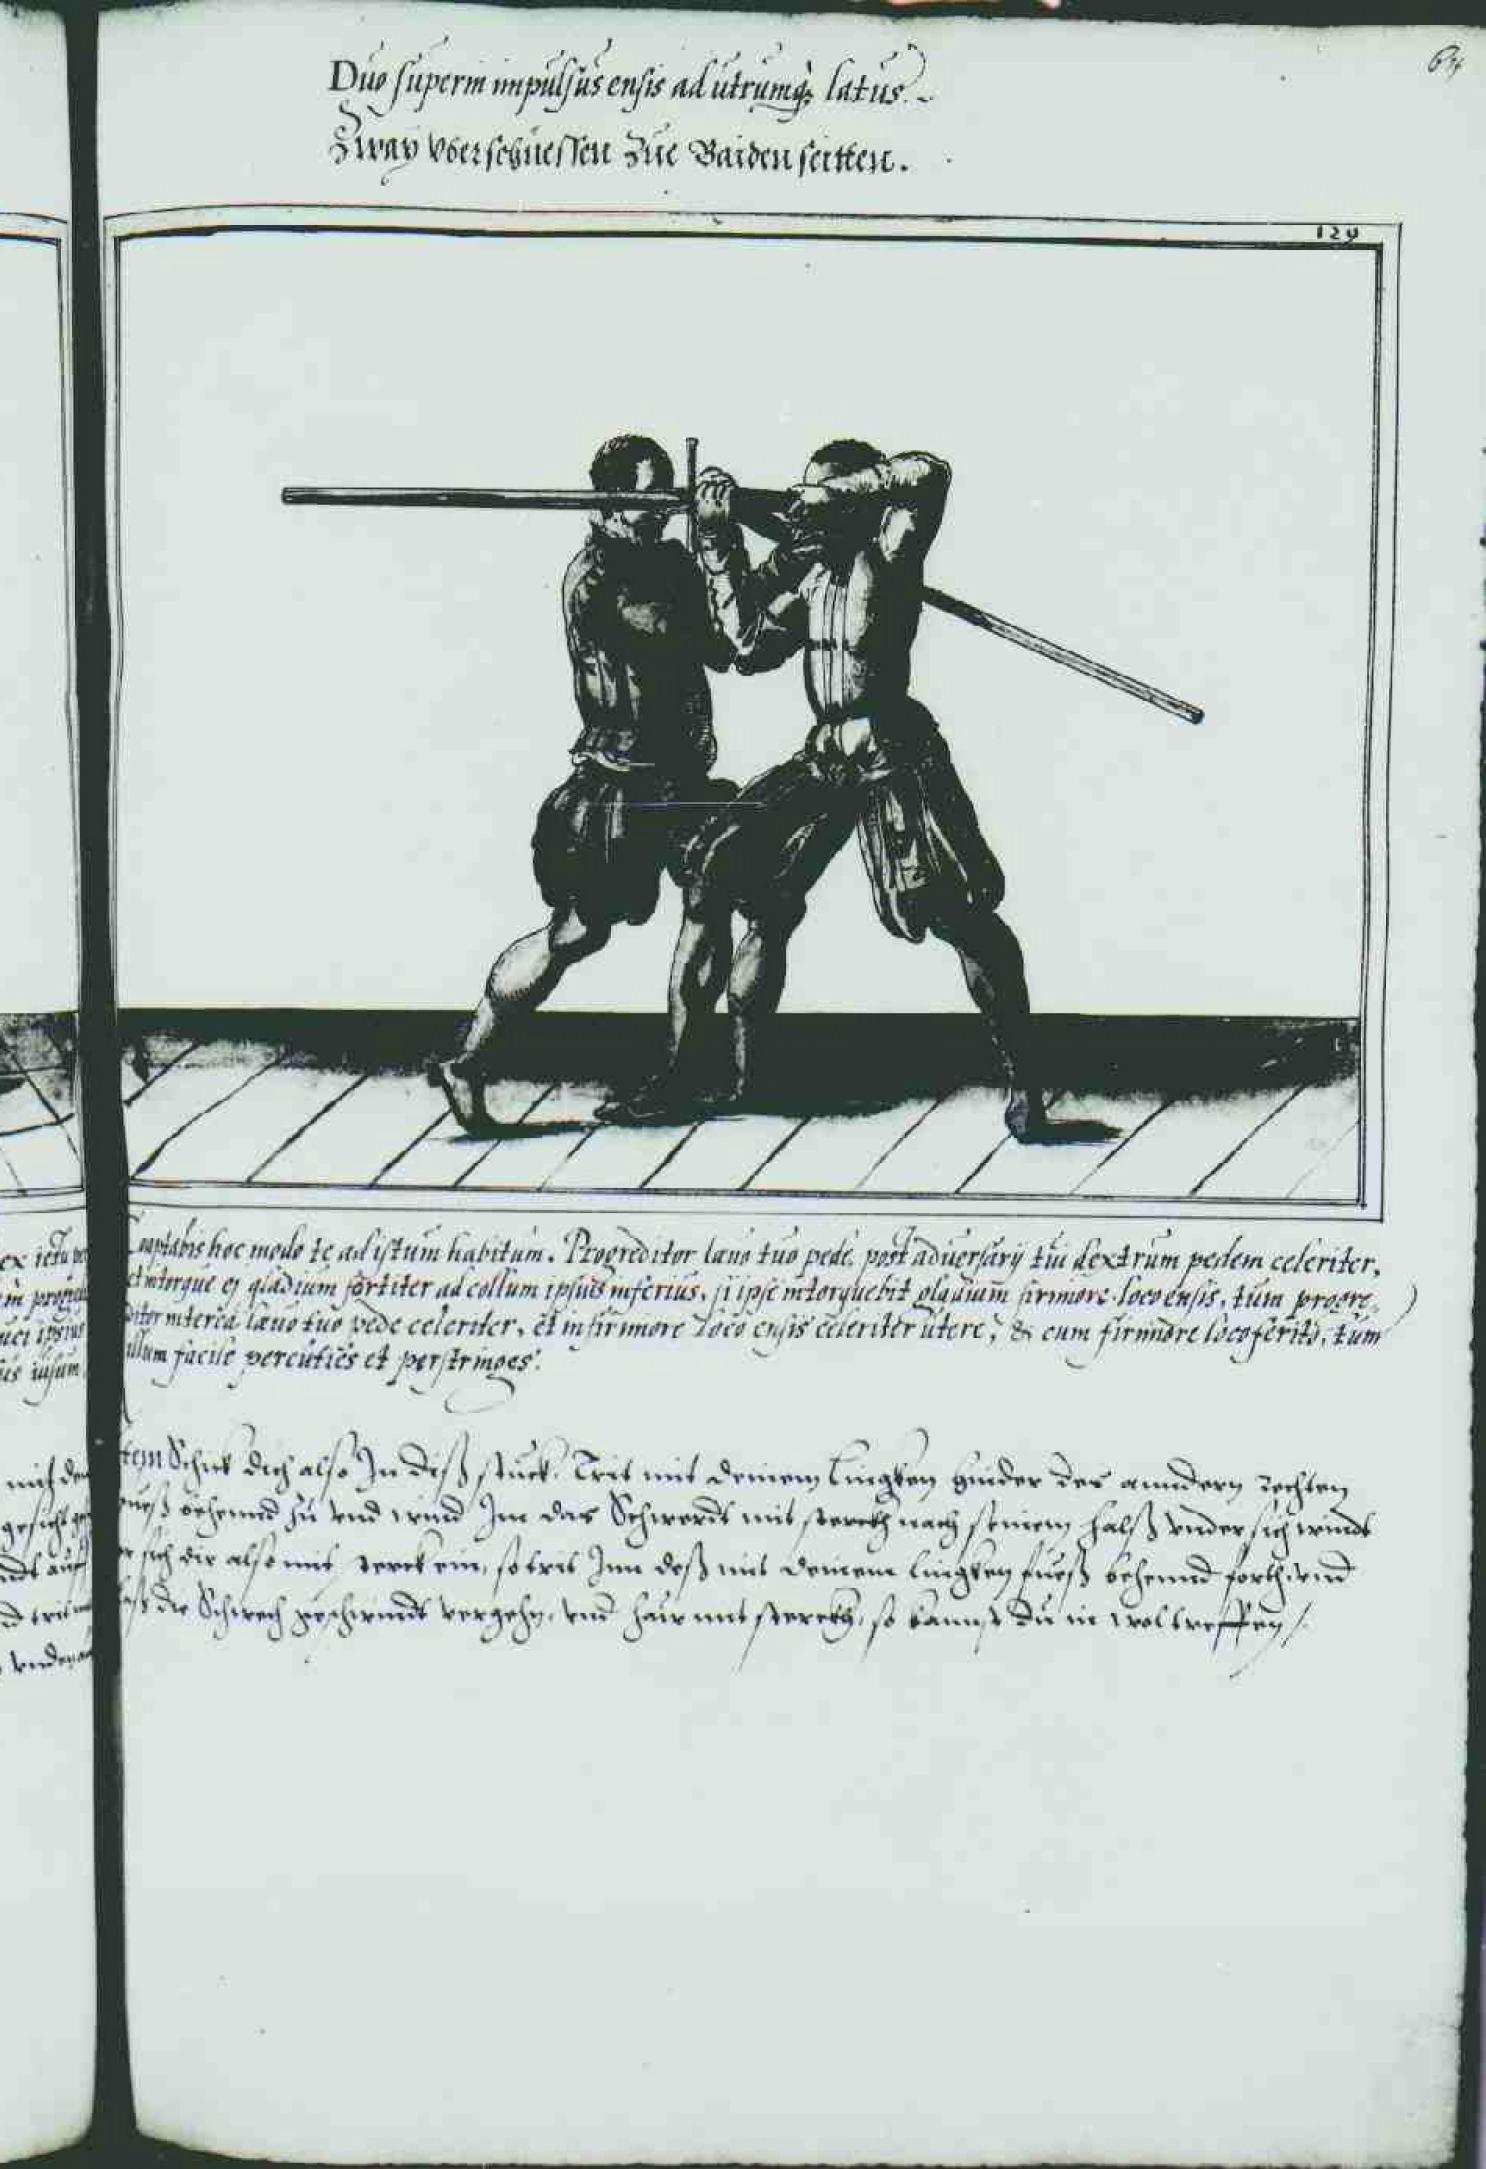 64
Duo superin impulsus ensis ad utrumq; latus.
Zway vberschuessen zue Baiden seitten.
129
Coaptabis hoc modo te ad istum habitum. Progreditor laeuo tuo pede, post aduersarij tui dextrum pedem celeriter,
et intorque ej gladium fortiter ad collum ipsius inferius, si ipse intorquebit gladium firmiore loco ensis, tum progre,,
ditor interea laeuo tuo pede celeriter, et infirmiore loco ensis celeriter utere, & cum firmiore loco ferito, tum
illum facile percuties et perstringes.
tem Schick dich also In diß stuck. Trit mit deinem Lingken hinder des anndern rechten
fueß behennd zu vnd wind Im das Schwerdt mit sterckh nach seinem halß vnder sich windt
er sich dir also mit sterck ein, so trit Inn deß mit deinem lingken fueß behennd forth, vnd
laß die Schwech geschwindt vergehn, vnd haw mit sterckh, so kannst du in wol treffen
ex ictu
mit
gesicht